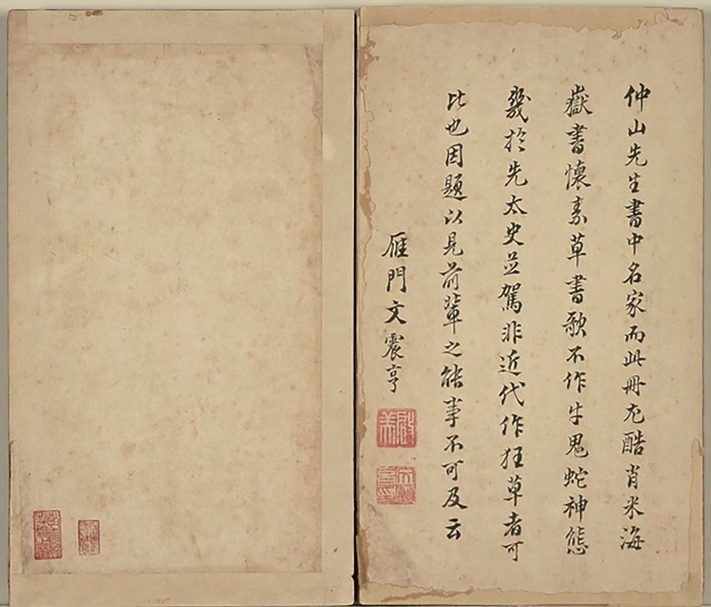 仲山先生書中名家而此冊尤酷肖米海
嶽書懷素草書歌不作牛鬼蛇神態
幾於先太史並駕非近代作狂草者可
比也因題以見前輩之能事不可及云
雁門文震亨